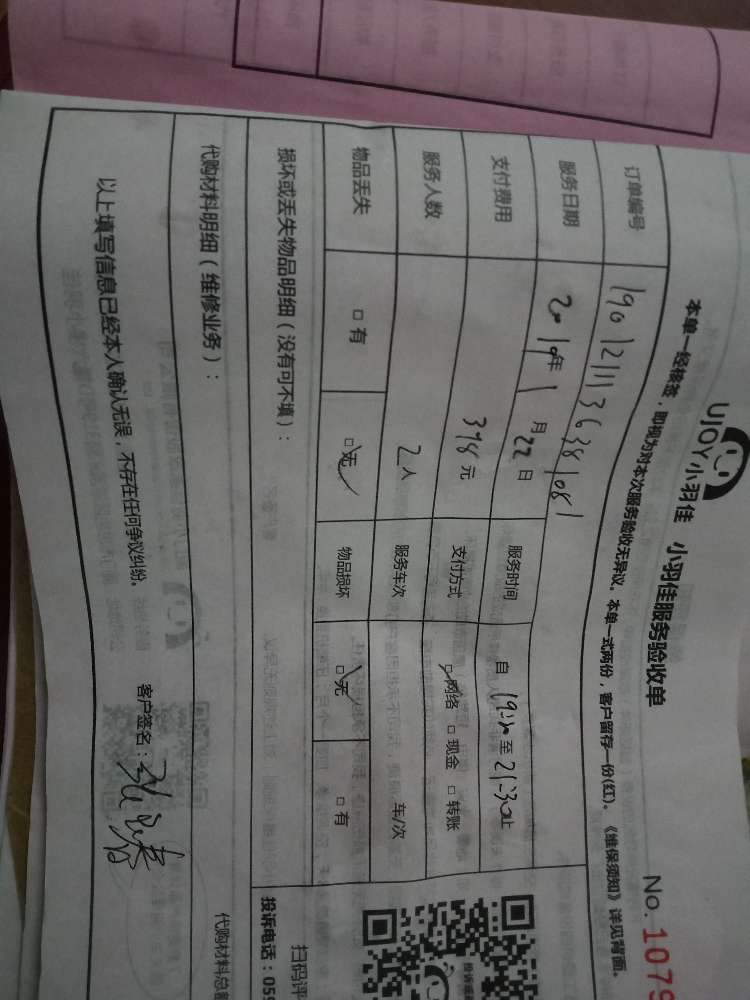 UJOY小羽佳 小羽佳服务验收单 No. 1079
本单一经接签，即视为对本次服务验收无异议。本单一式两份，客户留存一份(红)。《维保须知》详见背面。
订单编号 1901211136381081
服务日期 2019年1月22日 服务时间 自 19:30 至 21:30 止
支付费用 398元 支付方式 ☑网络 □现金 □转账
服务人数 2人 服务车次 车/次
物品丢失 □有 ☑无 物品损坏 ☑无 □有
损坏或丢失物品明细（没有可不填）：
代购材料明细（维修业务）：
代购材料总
以上填写信息已经本人确认无误，不存在任何争议纠纷。 客户签名：
扫码评
投诉电话：059